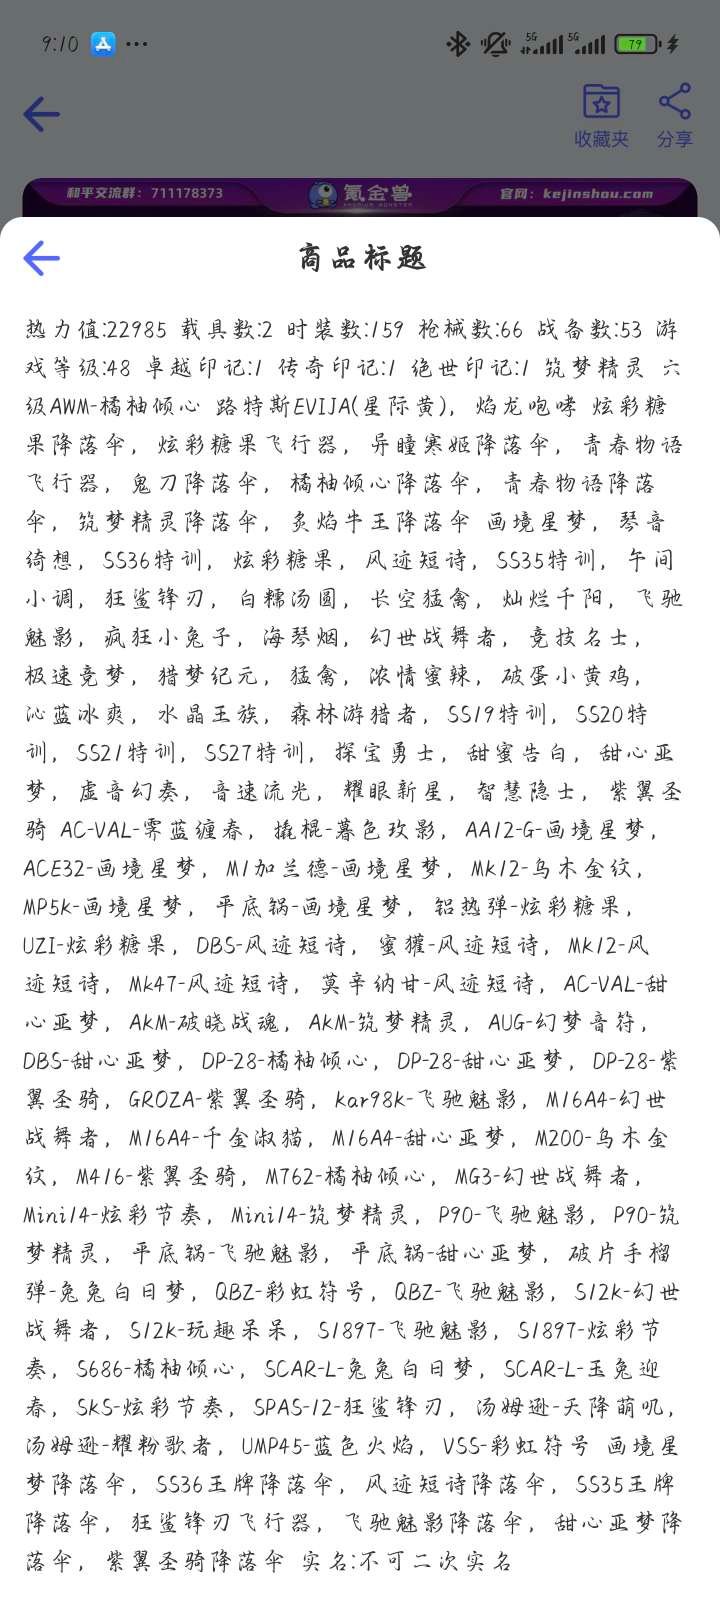 9:10
5G
5G
79
收藏夹
分享
和平交流群：711178373
氪金兽
官网：kejinshou.com
商品标题
热力值:22985 载具数:2 时装数:159 枪械数:66 战备数:53 游
戏等级:48 卓越印记:1 传奇印记:1 绝世印记:1 筑梦精灵 六
级AWM-橘柚倾心 路特斯EVIJA(星际黄)，焰龙咆哮 炫彩糖
果降落伞，炫彩糖果飞行器，异瞳寒姬降落伞，青春物语
飞行器，鬼刀降落伞，橘柚倾心降落伞，青春物语降落
伞，筑梦精灵降落伞，炙焰牛王降落伞 画境星梦，琴音
绮想，SS36特训，炫彩糖果，风迹短诗，SS35特训，午间
小调，狂鲨锋刃，白糯汤圆，长空猛禽，灿烂千阳，飞驰
魅影，疯狂小兔子，海琴烟，幻世战舞者，竞技名士，
极速竞梦，猎梦纪元，猛禽，浓情蜜辣，破蛋小黄鸡，
沁蓝冰爽，水晶王族，森林游猎者，SS19特训，SS20特
训，SS21特训，SS27特训，探宝勇士，甜蜜告白，甜心亚
梦，虚音幻奏，音速流光，耀眼新星，智慧隐士，紫翼圣
骑 AC-VAL-霁蓝缠春，撬棍-暮色玫影，AA12-G-画境星梦，
ACE32-画境星梦，M1加兰德-画境星梦，Mk12-乌木金纹，
MP5k-画境星梦，平底锅-画境星梦，铝热弹-炫彩糖果，
UZI-炫彩糖果，DBS-风迹短诗，蜜獾-风迹短诗，Mk12-风
迹短诗，Mk47-风迹短诗，莫辛纳甘-风迹短诗，AC-VAL-甜
心亚梦，AKM-破晓战魂，AKM-筑梦精灵，AUG-幻梦音符，
DBS-甜心亚梦，DP-28-橘柚倾心，DP-28-甜心亚梦，DP-28-紫
翼圣骑，GROZA-紫翼圣骑，Kar98K-飞驰魅影，M16A4-幻世
战舞者，M16A4-千金淑猫，M16A4-甜心亚梦，M200-乌木金
纹，M416-紫翼圣骑，M762-橘柚倾心，MG3-幻世战舞者，
Mini14-炫彩节奏，Mini14-筑梦精灵，P90-飞驰魅影，P90-筑
梦精灵，平底锅-飞驰魅影，平底锅-甜心亚梦，破片手榴
弹-兔兔白日梦，QBZ-彩虹符号，QBZ-飞驰魅影，S12K-幻世
战舞者，S12K-玩趣呆呆，S1897-飞驰魅影，S1897-炫彩节
奏，S686-橘柚倾心，SCAR-L-兔兔白日梦，SCAR-L-玉兔迎
春，SKS-炫彩节奏，SPAS-12-狂鲨锋刃，汤姆逊-天降萌叽，
汤姆逊-耀粉歌者，UMP45-蓝色火焰，VSS-彩虹符号 画境星
梦降落伞，SS36王牌降落伞，风迹短诗降落伞，SS35王牌
降落伞，狂鲨锋刃飞行器，飞驰魅影降落伞，甜心亚梦降
落伞，紫翼圣骑降落伞 实名:不可二次实名